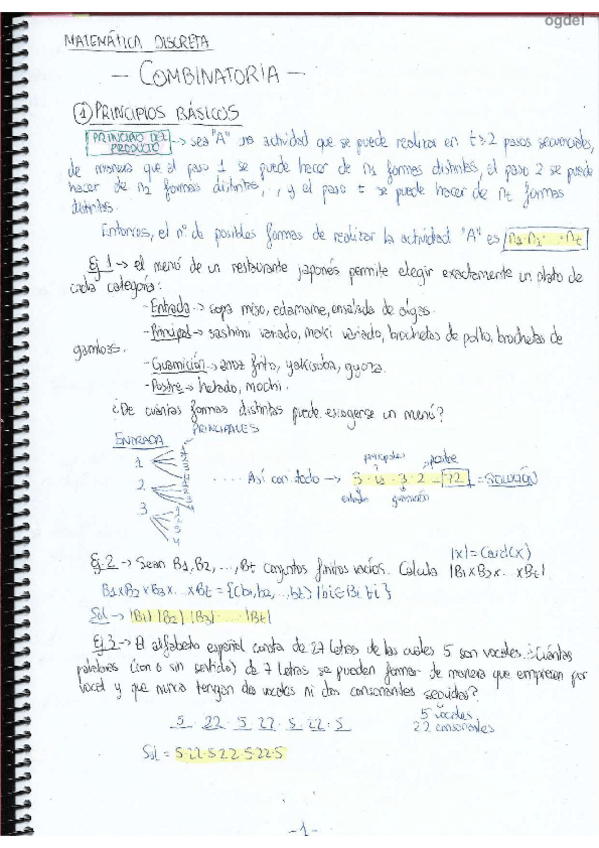 ogdei
MATEMÁTICA DISCRETA
- COMBINATORIA -
① PRINCIPIOS BÁSICOS
PRINCIPIO DEL PRODUCTO → sea "A" una actividad que se puede realizar en t≥2 pasos secuenciales,
de manera que el paso 1 se puede hacer de n₁ formas distintas, el paso 2 se puede
hacer de n₂ formas distintas, ..., y el paso t se puede hacer de nt formas
distintas.
Entonces, el nº de posibles formas de realizar la actividad "A" es n₁·n₂· ... ·nt
Ej 1 → el menú de un restaurante japonés permite elegir exactamente un plato de
cada categoría:
- Entrada → sopa miso, edamame, ensalada de algas.
- Principal → sashimi variado, maki variado, brochetas de pollo, brochetas de
gambas.
- Guarnición → arroz frito, yakisoba, gyoza.
- Postre → helado, mochi.
¿De cuántas formas distintas puede escogerse un menú?
PRINCIPALES
ENTRADA
1
2
3
principales
postre
..... Así con todo → 3·4·3·2 = 72 = SOLUCIÓN
entrada
guarnición
|x| = Card(x)
Ej 2 → Sean B₁, B₂, ..., Bt conjuntos finitos vacíos. Calcula |B₁×B₂×...×Bt|
B₁×B₂×B₃×...×Bt = {(b₁, b₂, ..., bt) | bi∈Bi ∀i}
Sol → |B₁|·|B₂|·|B₃|· ... ·|Bt|
Ej 3 → El alfabeto español consta de 27 letras de las cuales 5 son vocales. ¿Cuántas
palabras (con o sin sentido) de 7 letras se pueden formar de manera que empiecen por
vocal y que nunca tengan dos vocales ni dos consonantes seguidas?
5 · 22 · 5 · 22 · 5 · 22 · 5
5 vocales
22 consonantes
Sol = 5·22·5·22·5·22·5
-1-